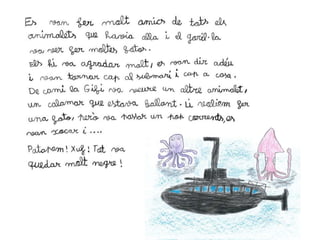 Es van fer molt amics de tots els
animalets que havia allà i el goril·la
va ver fer moltes fotos.
Els hi va agradar molt, es van dir adéu
i van tornar cap al submarí i cap a casa.
De camí la Gifi va veure un altre animalet,
un calamar que estava ballant. Li volíem fer
una foto, però va passar un pop corrents, es
van xocar i ....
Patapam! Xuf! Tot va
quedar molt negre!